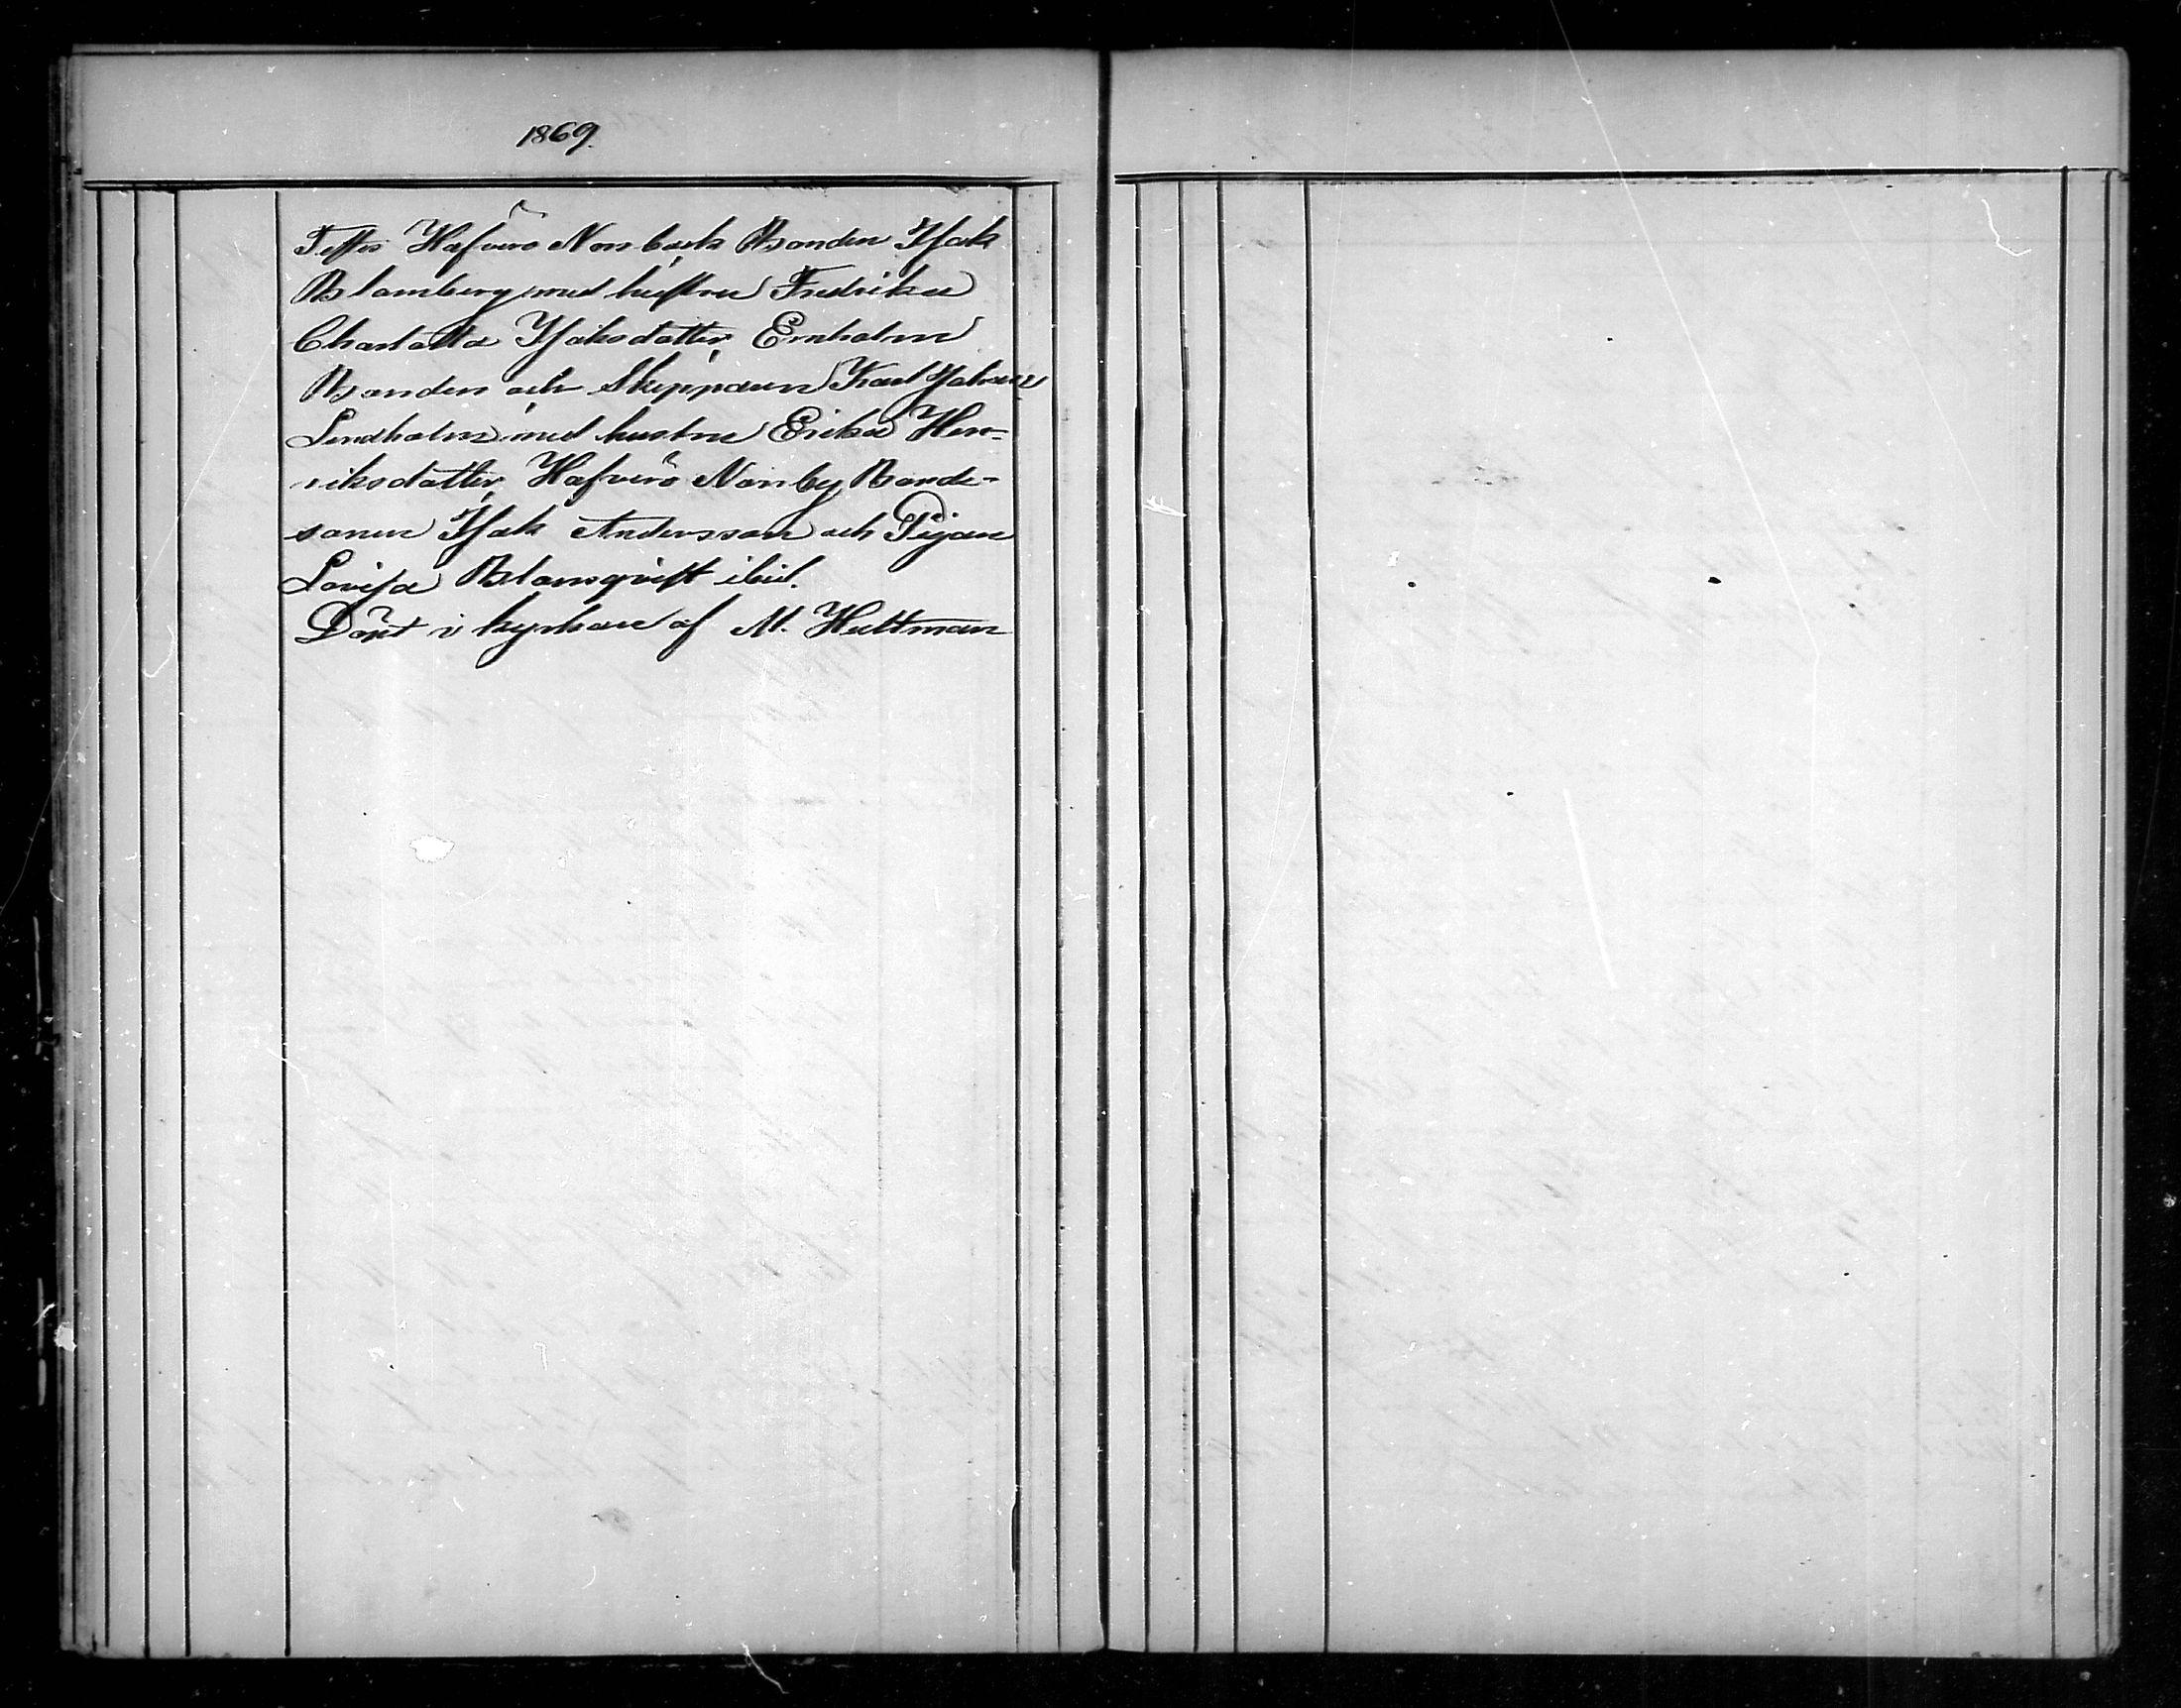 1869.
Testes Hafverö Norrbäck Bonden Isak
Blomberg med hustru Fredrika
Charlotta Isaksdotter, Ernholm
Bonden och Skepparen Karl Johan
Lindholm med hustru Erika Hen-
riksdotter, Hafverö Norrby Bonde-
sonen Isak Andersson och Pigan
Lovisa Blomqvist ibid.
Döpt i kyrkan af M. Hultman